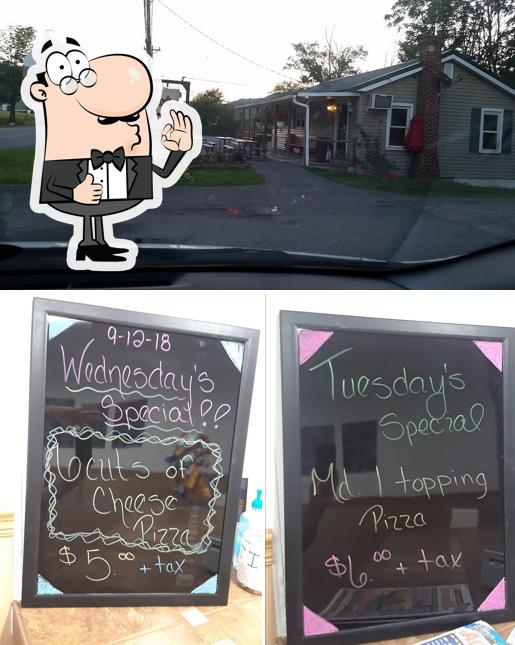 9-12-18
Wednesday's
Special!!
6 cuts of
Cheese
Pizza
$5.00 + tax
Tuesday's
Special
Md. 1 topping
Pizza
$6.00 + tax